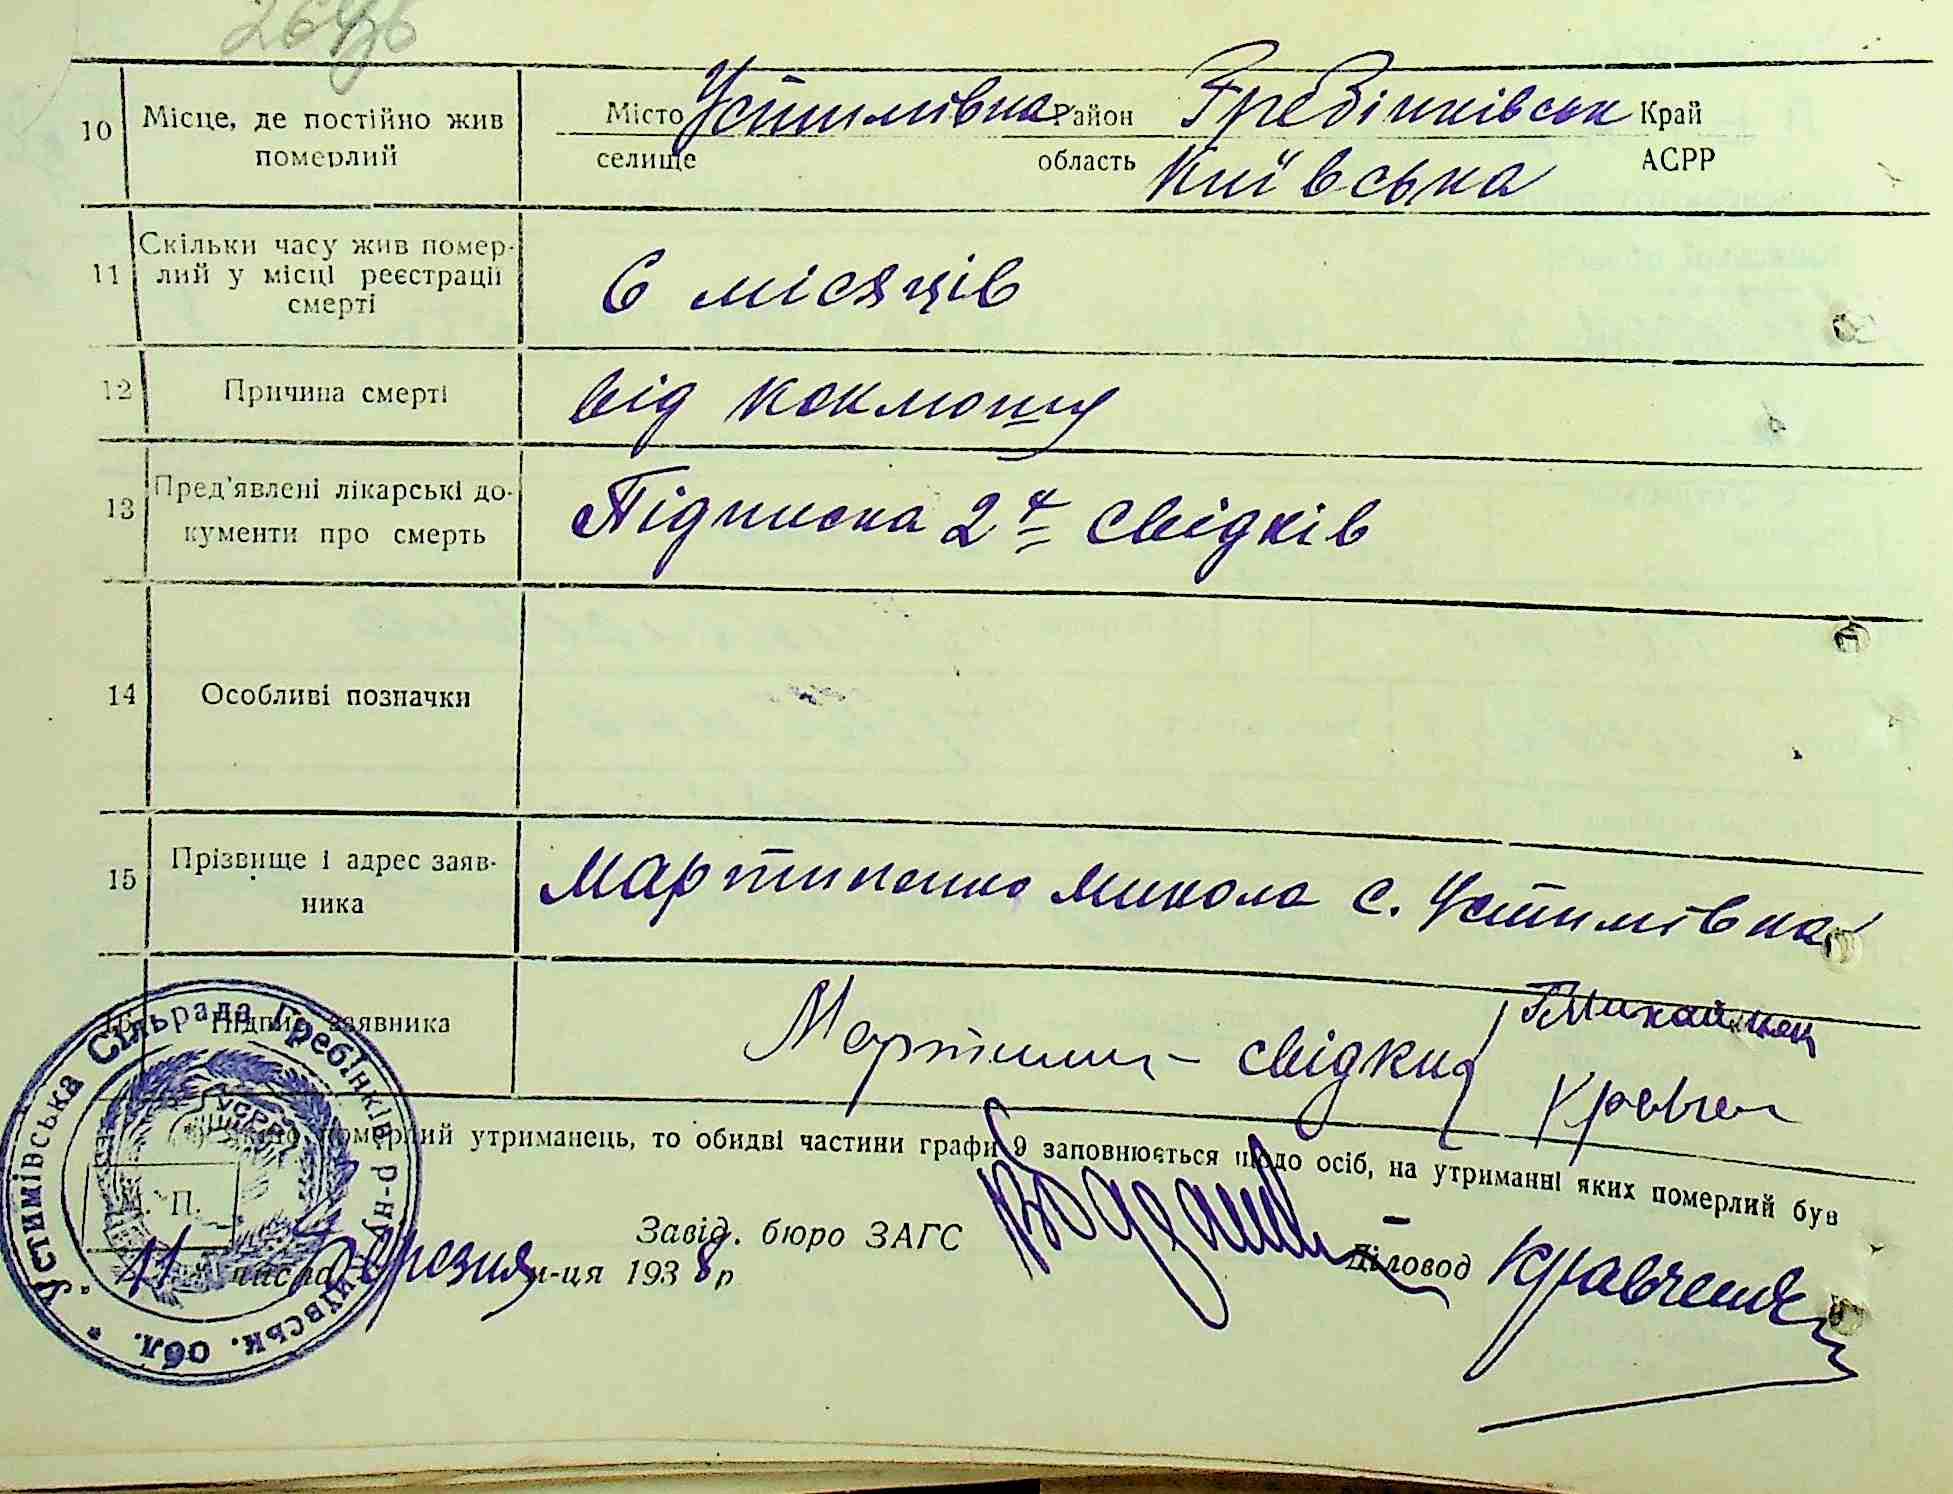 10 Місце, де постійно жив Місто Устимівка Район Гребінківськ Край
померлий селище область Київська АСРР
11 Скільки часу жив помер-
лий у місці реєстрації
смерті
6 місяців
12 Причина смерті від коклюшу
13 Пред'явлені лікарські до-
кументи про смерть
Підписка 2х свідків
14 Особливі позначки
15 Прізвище і адрес заяв-
ника
Мартиненко Микола с. Устимівка
Підпис заявника
свідки
померлий утриманець, то обидві частини графи 9 заповнюється щодо осіб, на утриманні яких померлий був
Завід. бюро ЗАГС
Діловод Кравченко
11 числа березня м-ця 1938 р
Устимівська Сільрада Гребінків р-ну Київськ. обл.
УСРР
П.